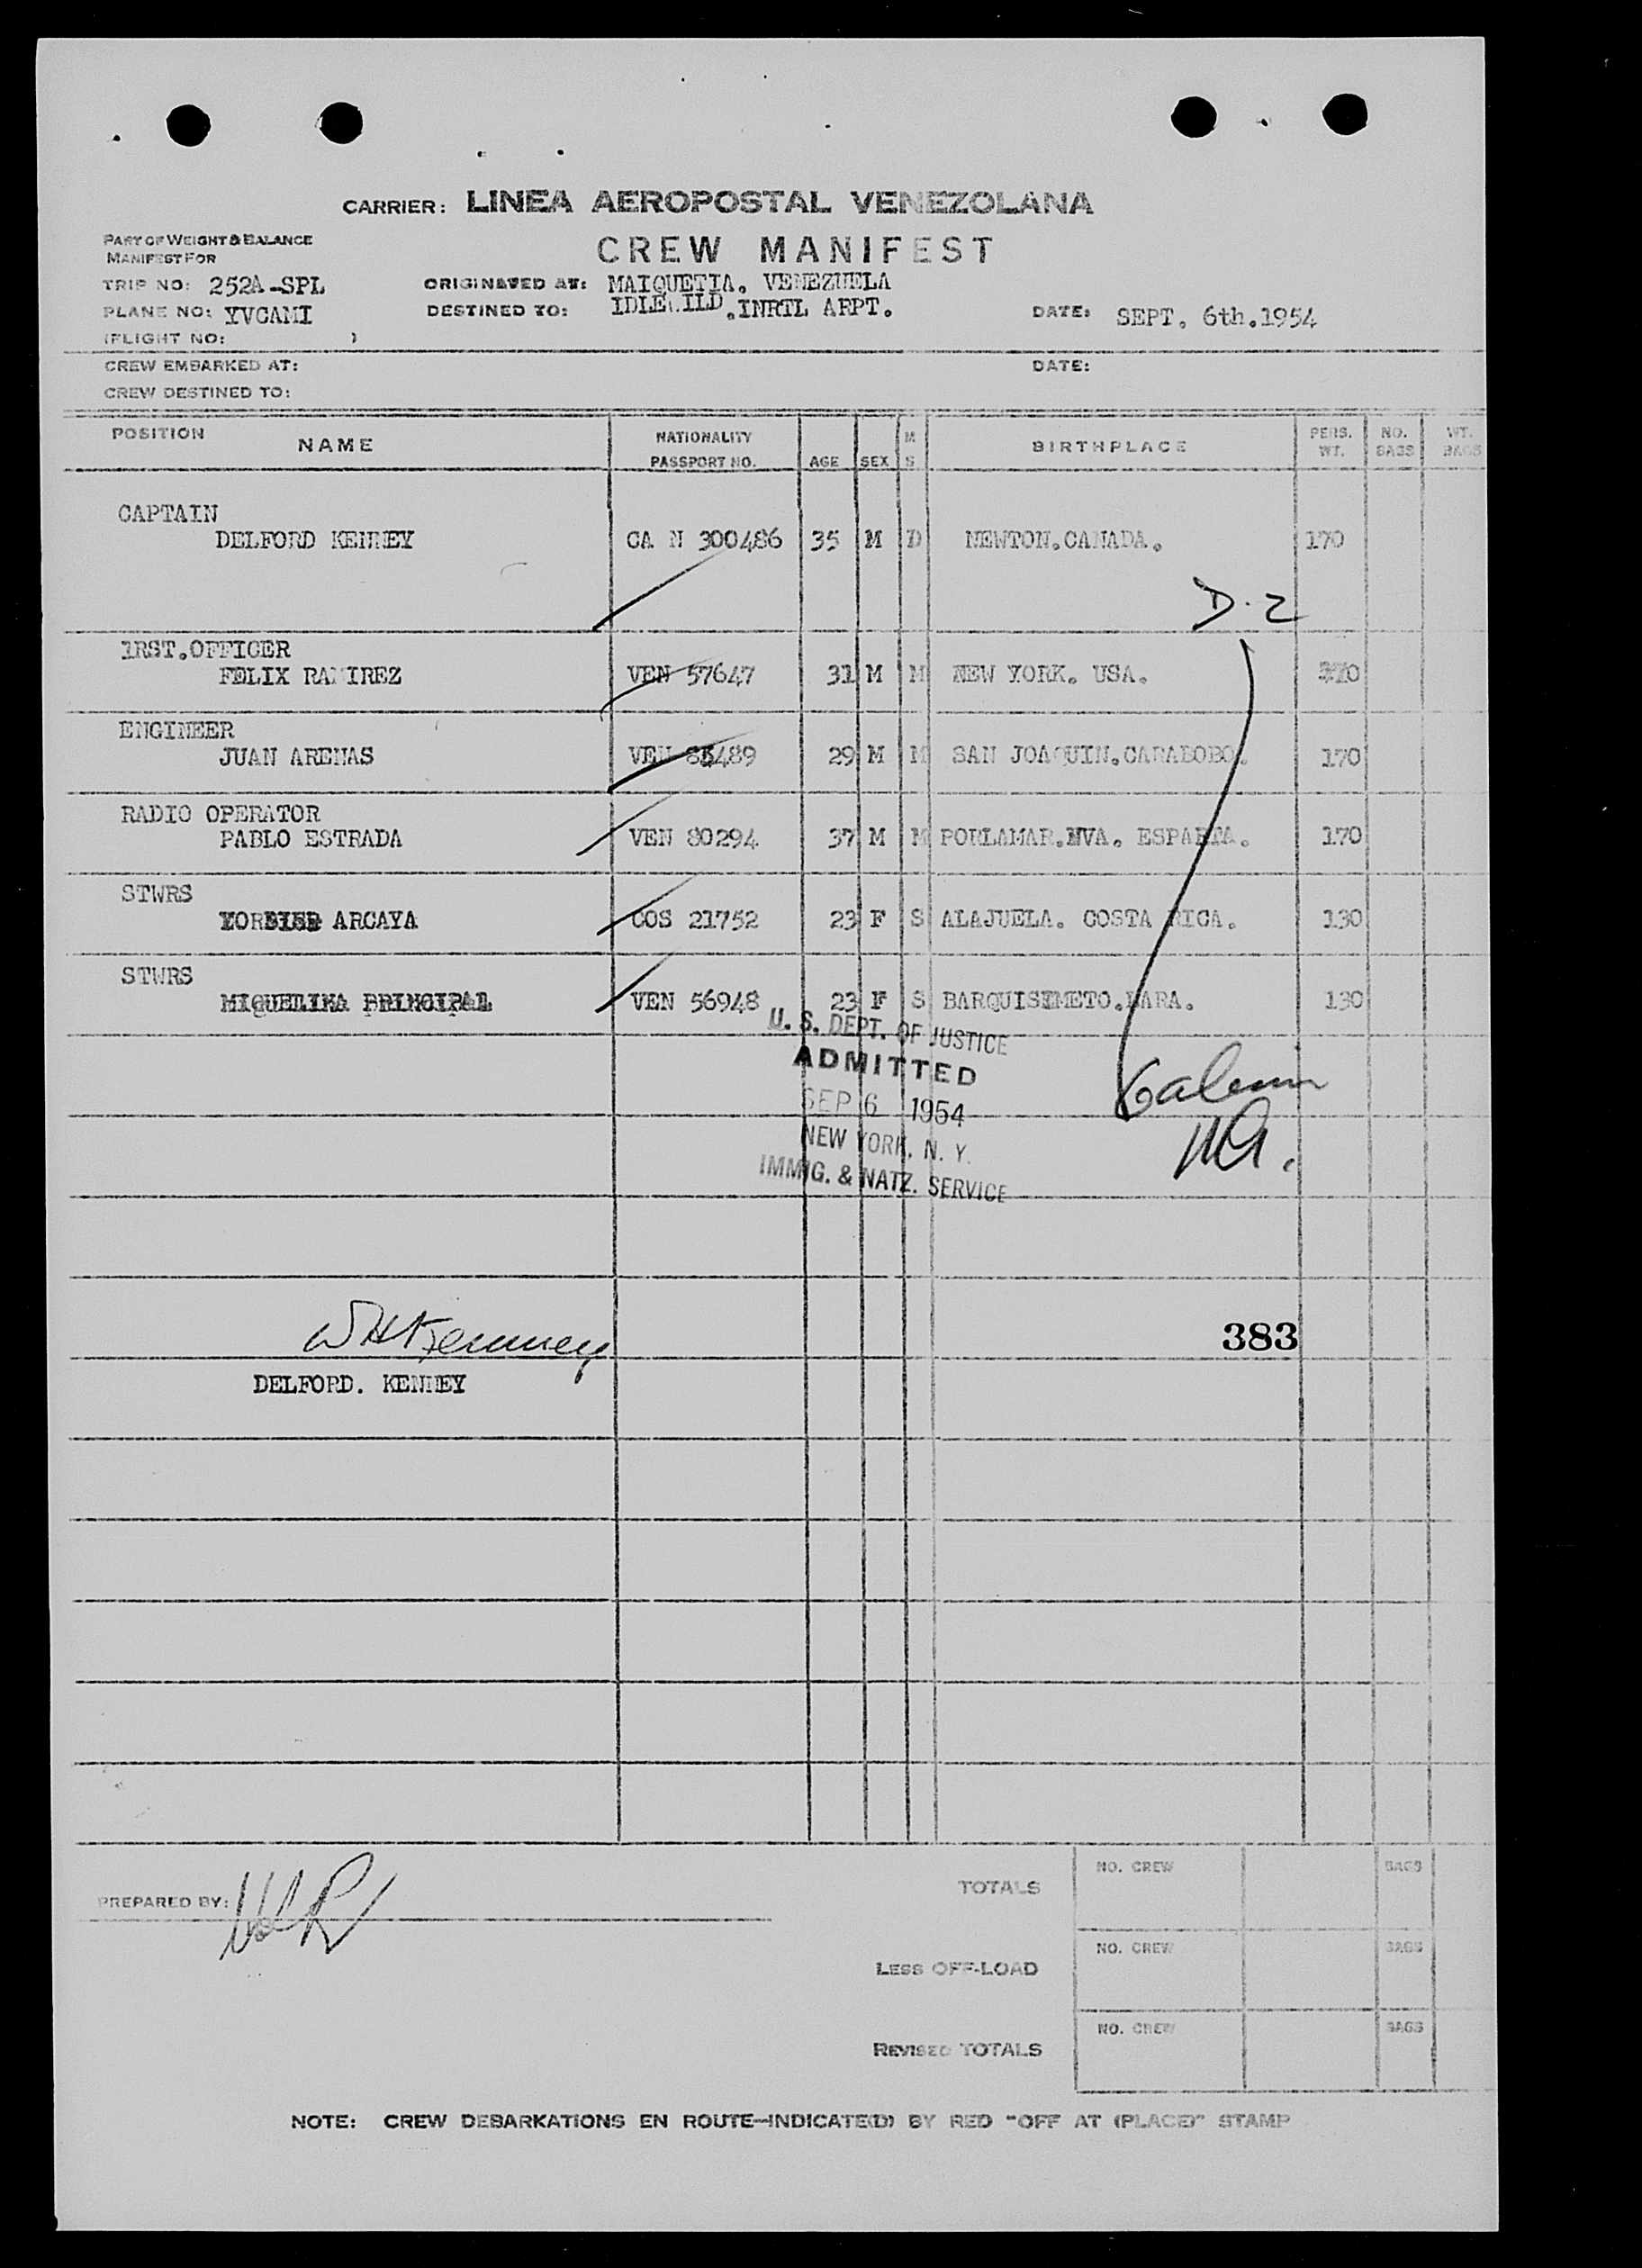 CARRIER: LINEA AEROPOSTAL VENEZOLANA
PART OF WEIGHT & BALANCE
MANIFEST FOR
CREW MANIFEST
TRIP NO: 252A-SPL ORIGINATED AT: MAIQUETIA. VENEZUELA
PLANE NO: YVCAMI DESTINED TO: IDLEWILD.INRTL ARPT. DATE: SEPT. 6th.1954
(FLIGHT NO: )
CREW EMBARKED AT: DATE:
CREW DESTINED TO:
POSITION NAME NATIONALITY PASSPORT NO. AGE SEX M S BIRTHPLACE PERS. WT. NO. BAGS WT. BAGS
CAPTAIN
DELFORD KENNEY CA N 300486 35 M D NEWTON.CANADA. 170
D.2
1RST.OFFICER
FELIX RAMIREZ VEN 57647 31 M M NEW YORK. USA. 170
ENGINEER
JUAN ARENAS VEN 489 29 M M SAN JOAQUIN.CARABOBO. 170
RADIO OPERATOR
PABLO ESTRADA VEN 80294 37 M M PORLAMAR.NVA. ESPARTA. 170
STWRS
ARCAYA COS 21752 23 F S ALAJUELA. COSTA RICA. 130
STWRS
MIQUELINA PRINCIPAL VEN 56948 23 F S BARQUISIMETO.LARA. 130
U. S. DEPT. OF JUSTICE
ADMITTED
SEP 6 1954
NEW YORK, N. Y.
IMMIG. & NATZ. SERVICE
383
DELFORD. KENNEY
PREPARED BY:
TOTALS NO. CREW BAGS
LESS OFF-LOAD NO. CREW BAGS
REVISED TOTALS NO. CREW BAGS
NOTE: CREW DEBARKATIONS EN ROUTE-INDICATE(D) BY RED "OFF AT (PLACE)" STAMP